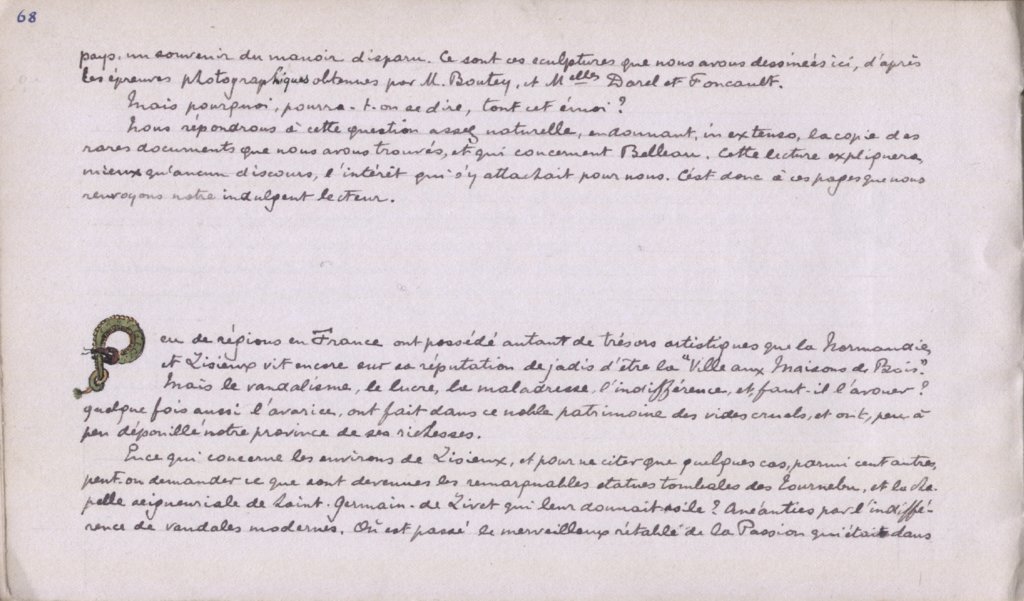 68
pays, un souvenir du manoir disparu. Ce sont ces sculptures que nous avons dessinées ici, d'après
les épreuves photographiques obtenues par M. Boutey, et Melles Darel et Foucault.
Mais pourquoi, pourra-t-on se dire, tout cet émoi ?
Nous répondrons à cette question assez naturelle, en donnant, in extenso, la copie des
rares documents que nous avons trouvés, et qui concernent Belleau. Cette lecture expliquera,
mieux qu'aucun discours, l'intérêt qui s'y attachait pour nous. C'est donc à ces pages que nous
renvoyons notre indulgent lecteur.
Peu de régions en France ont possédé autant de trésors artistiques que la Normandie,
et Lisieux vit encore sur sa réputation de jadis d'être la "Ville aux Maisons de Bois".
Mais le vandalisme, le lucre, la maladresse, l'indifférence, et, faut-il l'avouer ?
quelque fois aussi l'avarice, ont fait dans ce noble patrimoine des vides cruels, et ont, peu à
peu dépouillé notre province de ses richesses.
En ce qui concerne les environs de Lisieux, et pour ne citer que quelques cas, parmi cent autres,
peut-on demander ce que sont devenues les remarquables statues tombales des Tournebu, et la cha-
pelle seigneuriale de Saint-Germain-de-Livet qui leur donnait asile ? Anéanties par l'indiffé-
rence de vandales modernes. Où est passé le merveilleux rétable de la Passion qui était dans